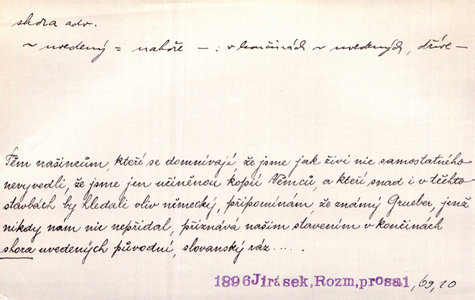 shora adv.
~ uvedený = nahoře – : v končinách ~ uvedených, dříve –
Těm našincům, kteří se domnívají, že jsme jak živi nic samostatného
nevyvedli, že jsme jen učiněnou kopií Němců, a kteří snad i v těchto
stavbách by hledali vliv německý, připomínám, že známý Grueber, jenž
nikdy nám nic nepřidal, přiznává našim stavením v končinách
shora uvedených původní, slovanský ráz . . . .
1896 Jirásek, Rozm. prosa 1, 69, 20